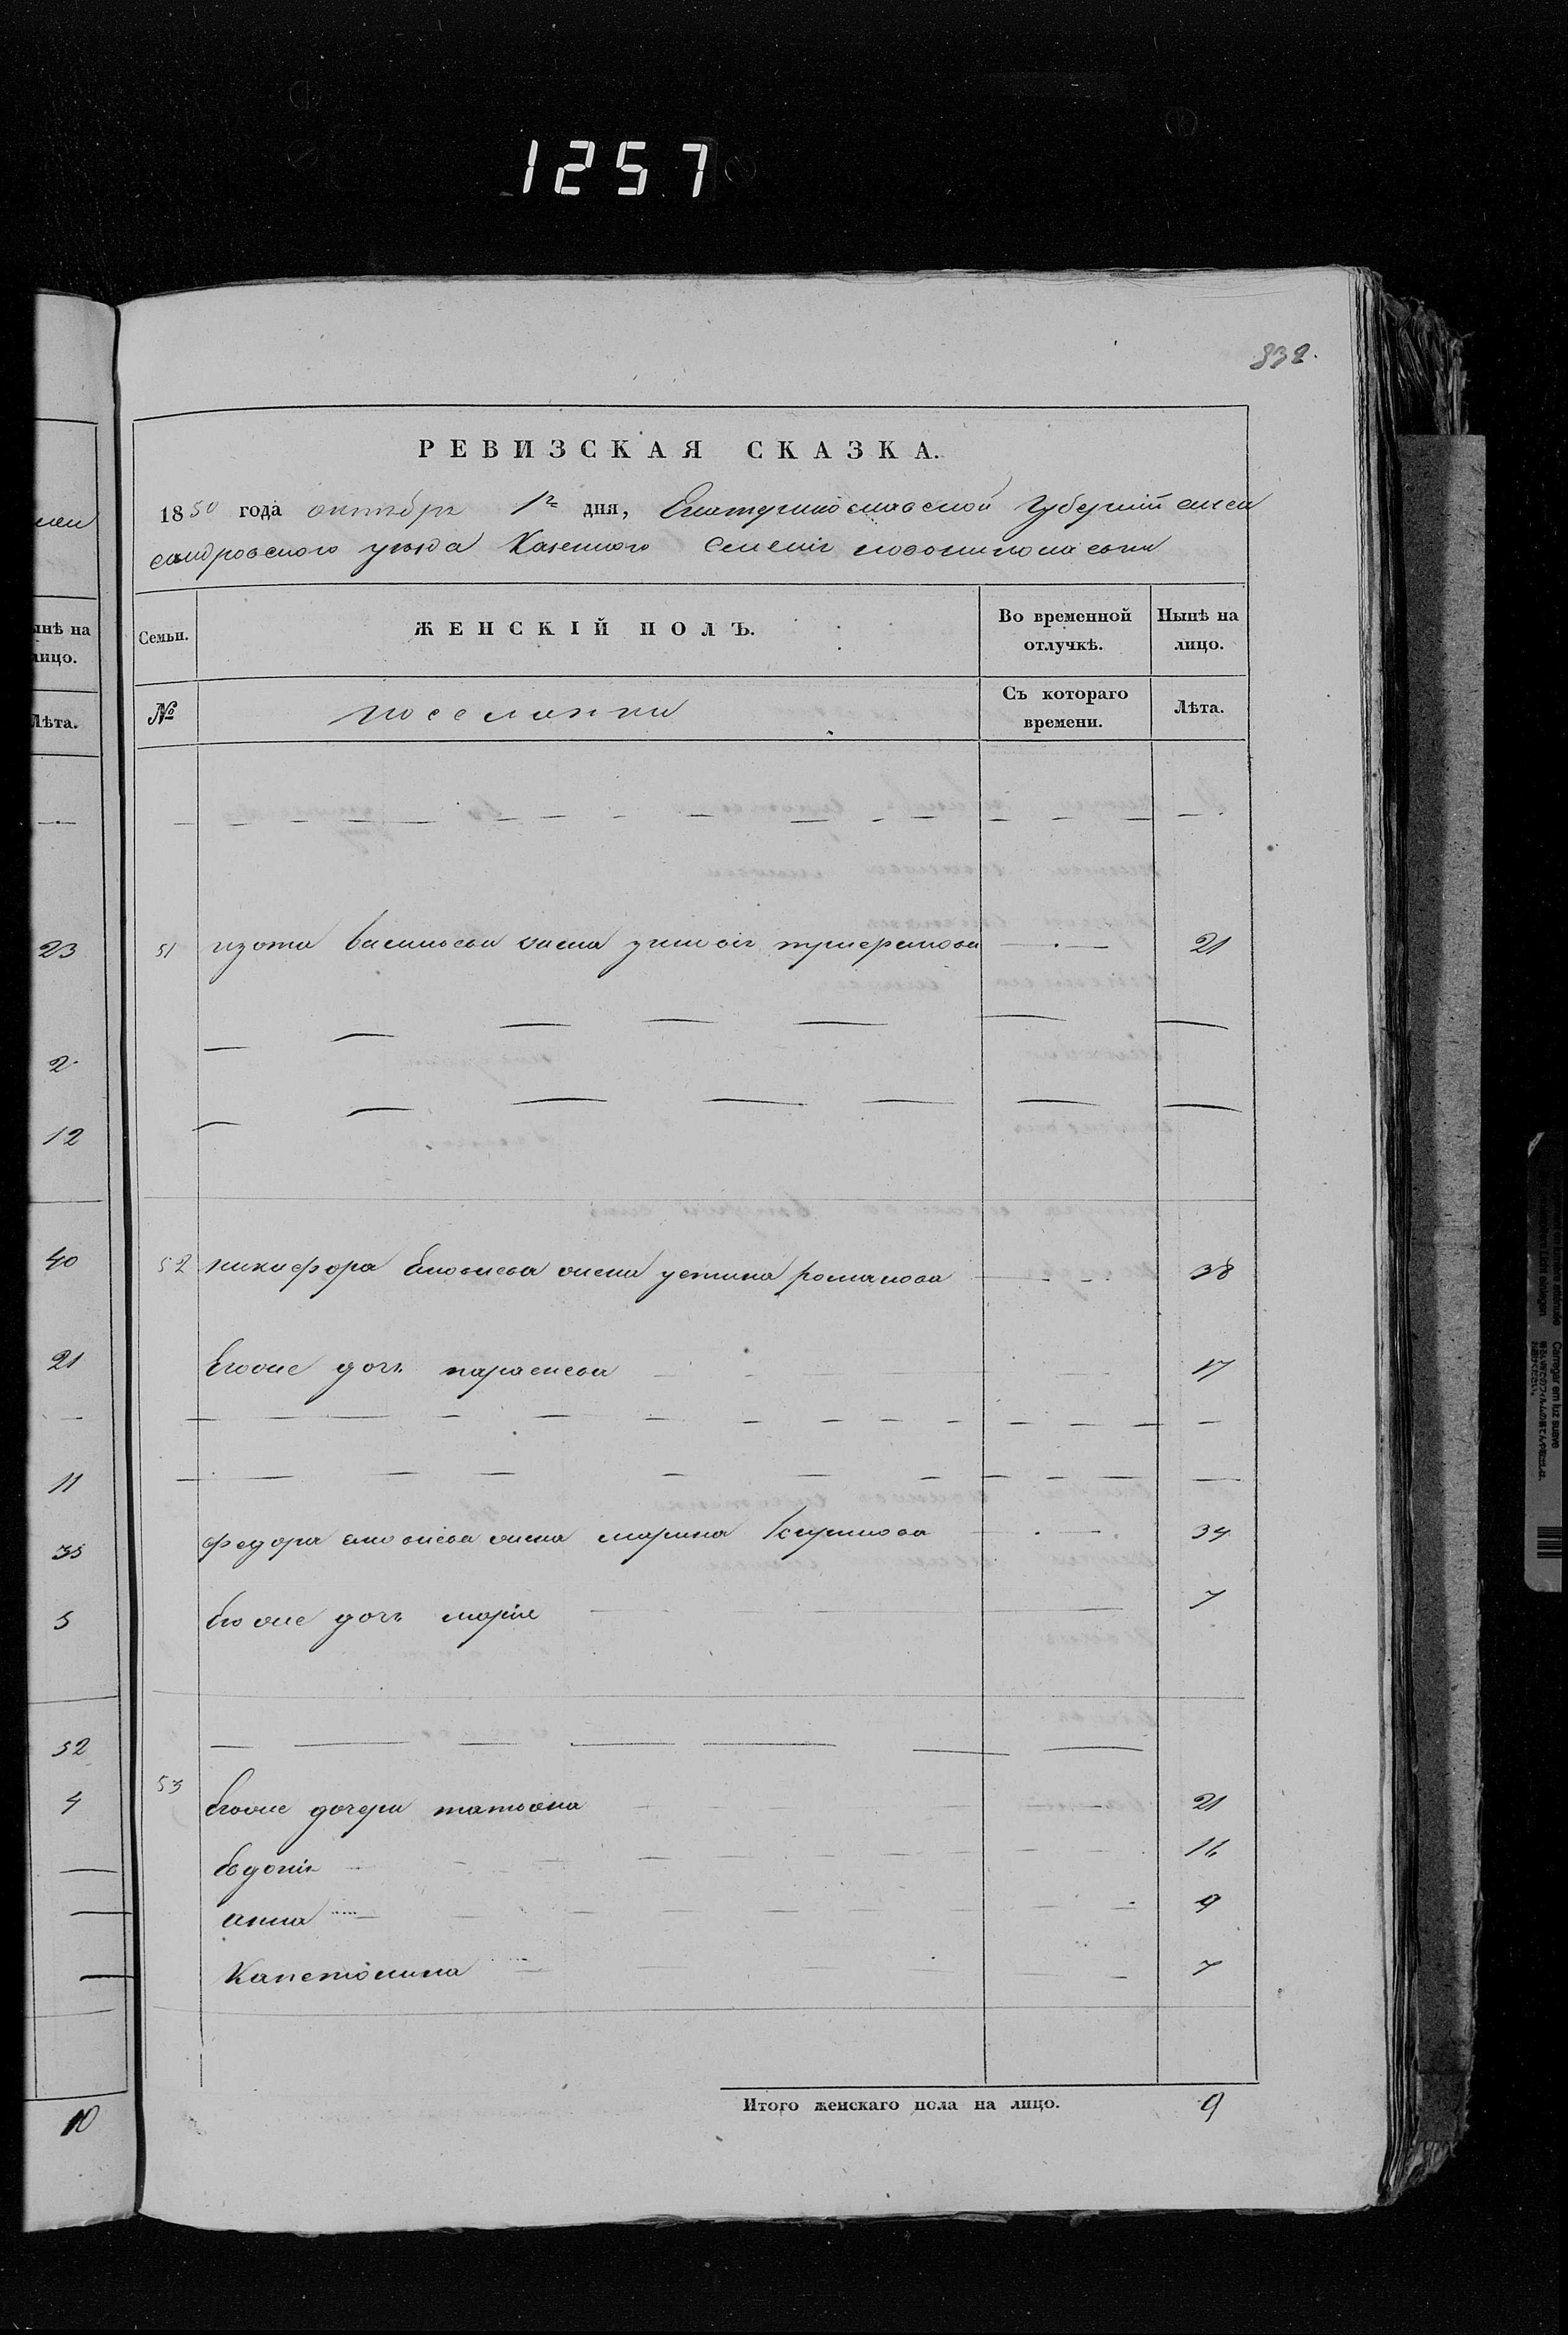 1257
832.
РЕВИЗСКАЯ СКАЗКА.
1850 года октября 1го дня, Екатеринославской Губернии алек
сандровского уезда Казенного Селения
Семьи. ЖЕНСКІЙ ПОЛЪ. Во временной отлучкѣ. Нынѣ на лицо.
№ поселянки Съ котораго времени. Лѣта.
51 изота васильева жена зиновія 21
52 никифора жена устина романова 38
Его же дочь парасковья 17
федора жена марина Кирилова 34
Его же дочь марія 7
53
Его же дочери татьяна 21
Евдокія 16
анна 9
Капетолина 7
Итого женскаго пола на лицо. 9
ынѣ на
лицо.
Лѣта.
23
2
12
40
21
11
35
5
52
4
10